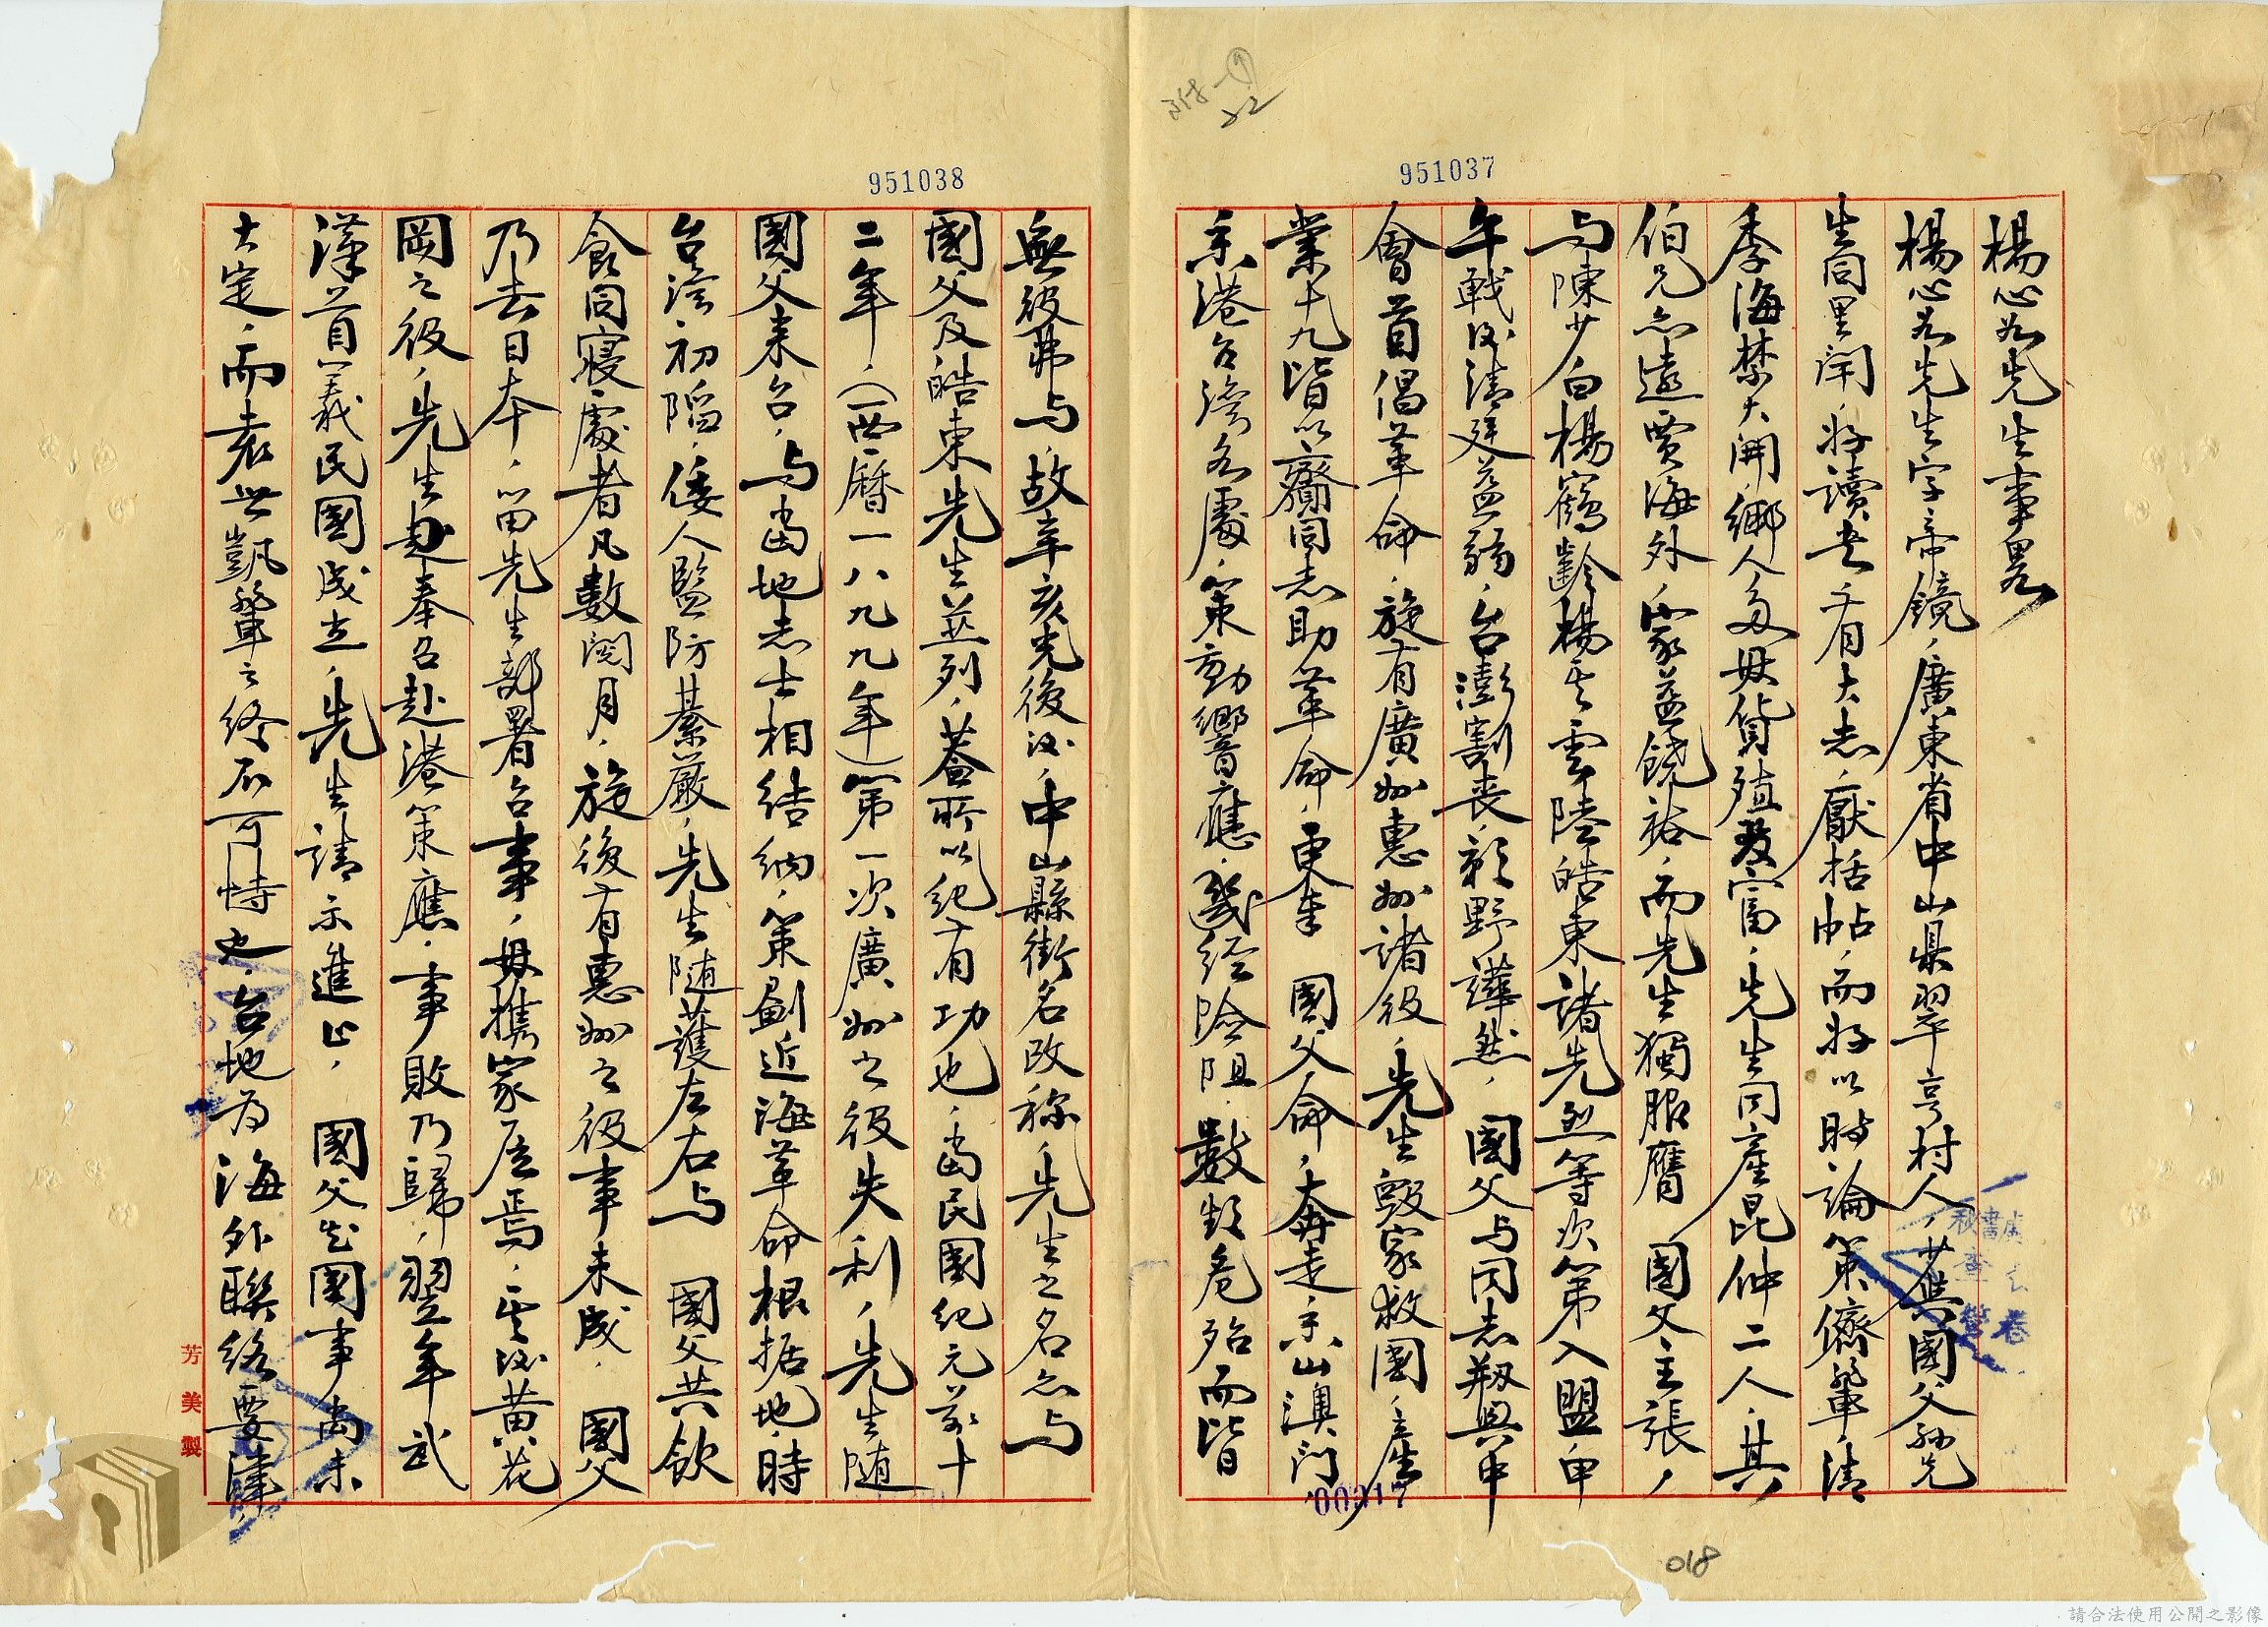 951037
楊心如先生事畧
楊心如先生字帝鏡，廣東省中山県翠亨村人，蓋與國父孫先
生同里閈，好讀書，有大志，厭括帖，而好以時論策儕輩，清
季海禁大開，鄉人多毋貨殖致富，先生同產昆仲二人，其
伯兄亦遠賈海外，家益饒裕，而先生獨服膺　國父主張，
与陳少白楊鶴齡楊雲陸皓東諸先烈等次第入盟甲
午戰後清廷益弱，台澎割喪，朝野譁然，　國父与同志刱興中
會首倡革命，旋有廣州惠州諸役，先生毀家救國，產
業十九皆以齎同志助革命，更奉　國父命，奔走香山澳門
香港台灣各處，策動響應，幾經險阻，數頻危殆而皆
951038
無役弗与，故辛亥光復後，中山縣街名改称先生之名亦与
國父及皓東先生並列，蓋所以紀有功也，當民國紀元前十
二年，（西曆一八九九年）第一次廣州之役失利，先生随
國父来台，与當地志士相結納，策劃近海革命根据地，時
台湾初陷，倭人監防綦嚴，先生随護左右与　國父共飲
食同寢處者凡數閱月，旋後有惠州之役事未成，　國父
乃去日本，留先生部署台事，毋携家居焉，其後黃花
岡之役，先生奉召赴港策應，事敗乃歸，翌年武
漢首義民國成立，先生請示進止，　國父以國事尚未
大定，而袁世凱輩之終不可恃也，台地为海外聯络要津，
芳美製
00017
018
請合法使用公開之影像